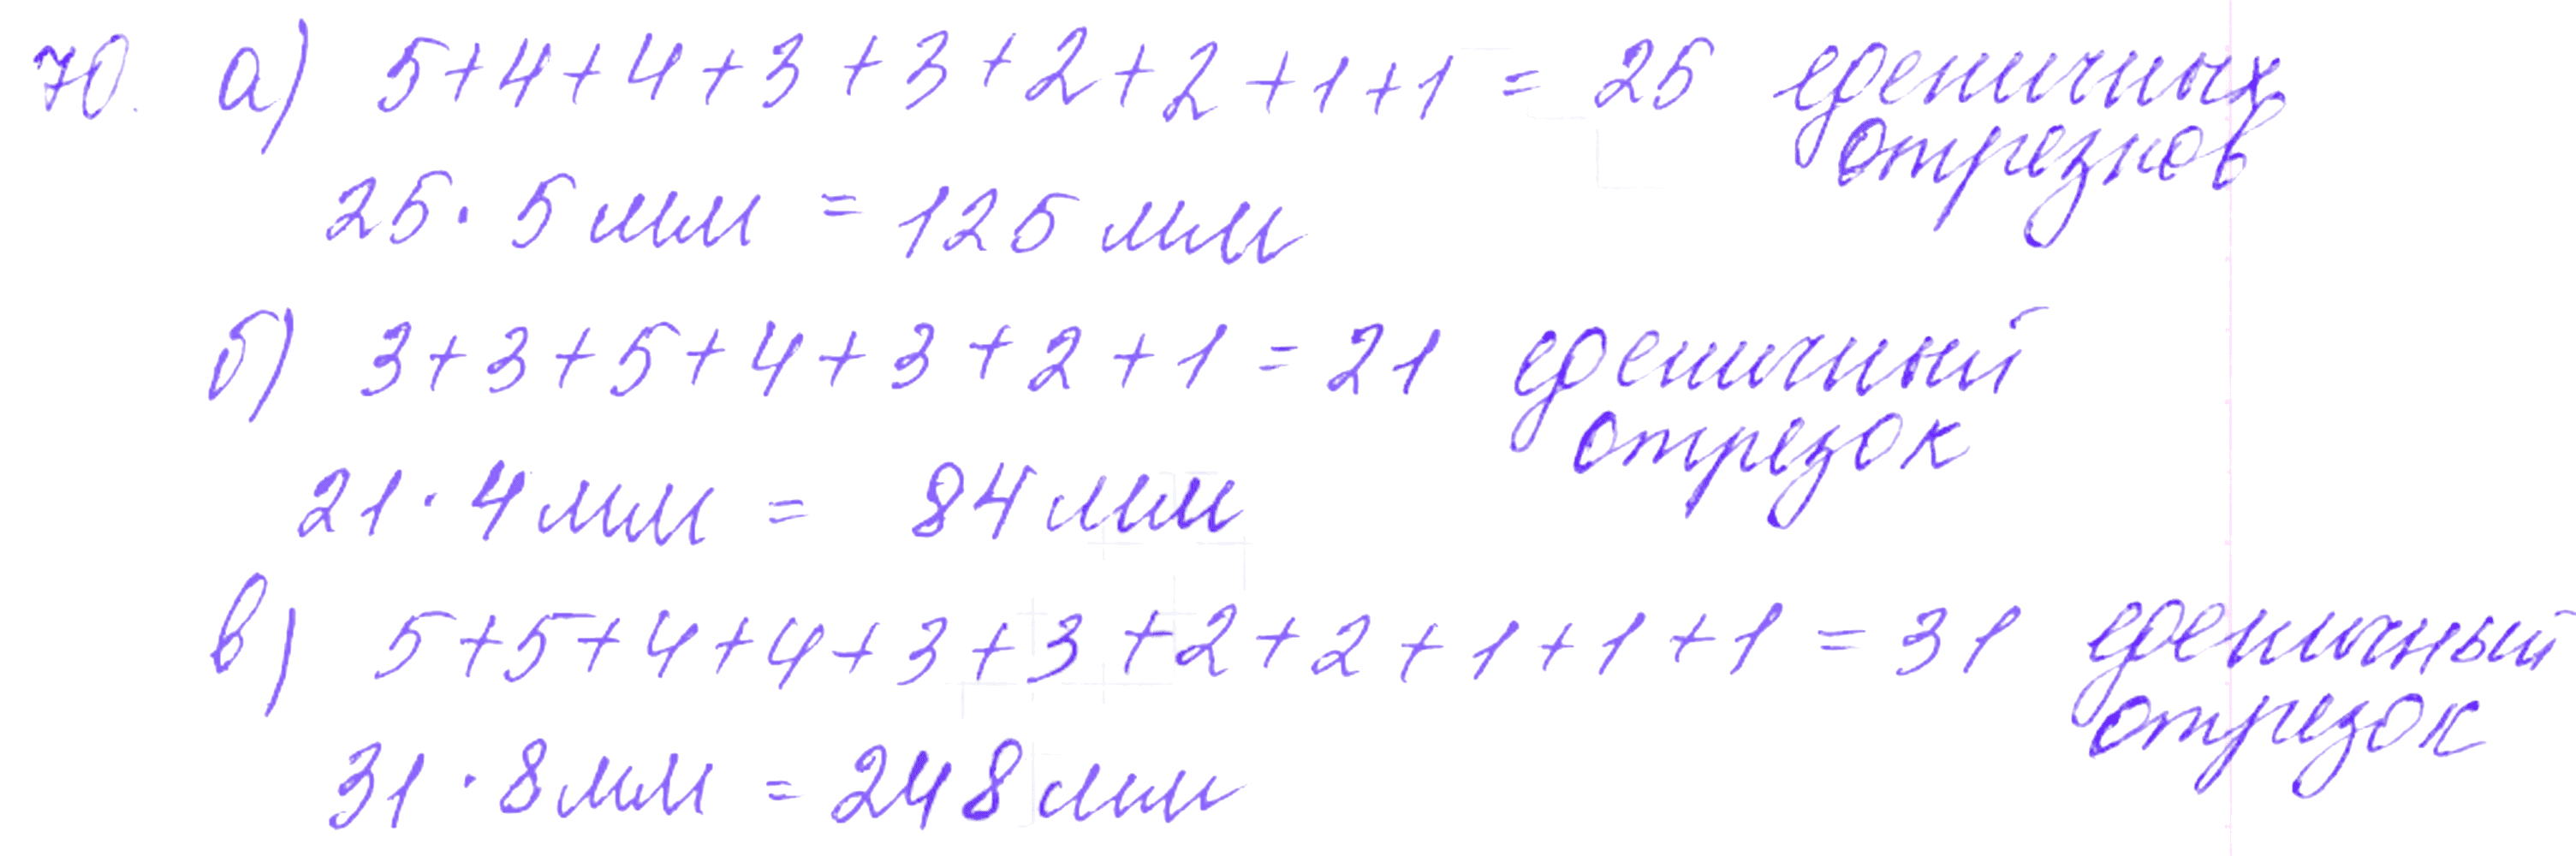 70. а) 5+4+4+3+3+2+2+1+1 = 25 еденичных
отрезков
25 · 5 мм = 125 мм
б) 3+3+5+4+3+2+1 = 21 еденичный
отрезок
21 · 4 мм = 84 мм
в) 5+5+4+4+3+3+2+2+1+1+1 = 31 еденичный
отрезок
31 · 8 мм = 248 мм